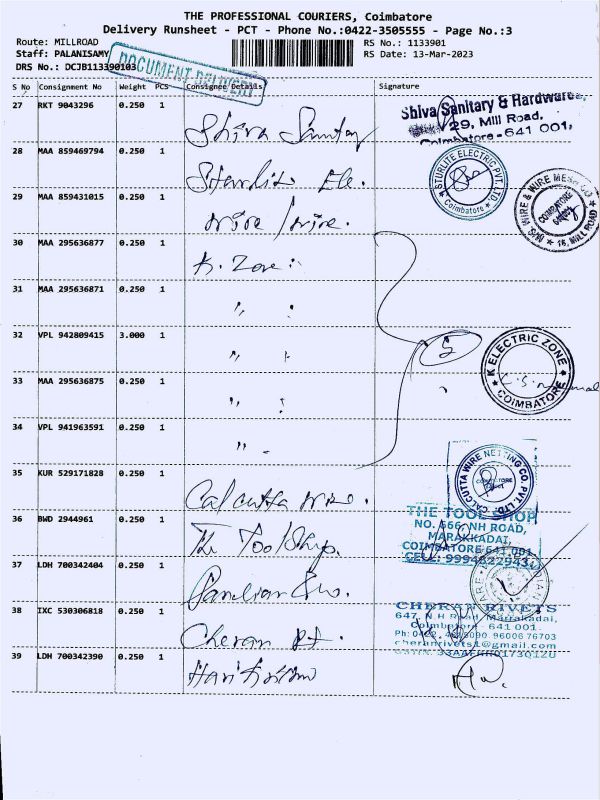 THE PROFESSIONAL COURIERS, Coimbatore
Delivery Runsheet - PCT - Phone No.:0422-3505555 - Page No.:3
Route: MILLROAD
RS No.: 1133901
Staff: PALANISAMY
RS Date: 13-Mar-2023
DRS No.: DCJB113390103
DOCUMENT DELIVERY
S No Consignment No Weight PCS Consignee Details Signature
27 RKT 9043296 0.250 1 Shiva Sanitary
Shiva Sanitary & Hardwares,
29, Mill Road,
Coimbatore - 641 001,
28 MAA 859469794 0.250 1 Starlite Ele.
STURLITE ELECTRIC PVT. LTD
Coimbatore
29 MAA 859431015 0.250 1 wire / wire.
M/S WIRE & WIRE MESH CO
COIMBATORE
16, MILL ROAD
30 MAA 295636877 0.250 1 K. Zone :
31 MAA 295636871 0.250 1 " :
32 VPL 942809415 3.000 1 "
5
K ELECTRIC ZONE
COIMBATORE
33 MAA 295636875 0.250 1 " :
34 VPL 941963591 0.250 1 "
35 KUR 529171828 0.250 1 Calcutta wire.
CALCUTTA WIRE NETTING CO. PVT. LTD.
COIMBATORE
36 BWD 2944961 0.250 1 The Tool Shop.
THE TOOL SHOP
NO. 566, NH ROAD,
MARAKKADAI,
COIMBATORE 641 001
CELL: 9994622943
37 LDH 700342404 0.250 1
38 IXC 530306818 0.250 1 Cheran Rt.
CHERAN RIVETS
647, N H Road, Marrakadai,
Coimbatore - 641 001
96006 76703
cheranrivets1@gmail.com
39 LDH 700342390 0.250 1